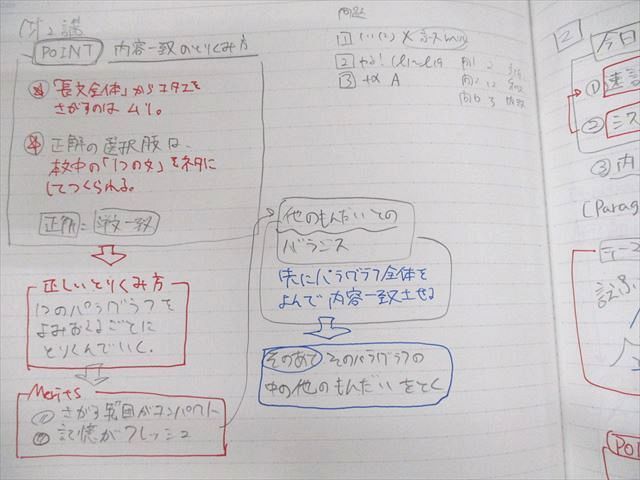 2講
POINT 内容一致のとりくみ方
「長文全体」からコタエを
さがすのはムリ。
正解の選択肢は、
本文中の「1つの文」をネタに
してつくられる。
正解 = 一致
正しいとりくみ方
1つのパラグラフを
よみおえるごとに
とりくんでいく。
Merits
① さがす範囲がコンパクト
② 記憶がフレッシュ
他のもんだいとの
バランス
先にパラグラフ全体を
よんで内容一致させる
そのあとそのパラグラフの
中の他のもんだいをとく
問題
1
2
3 +α A
2
今日
① 速読
② ミス
③ 内
(Parag
テーマ
POI